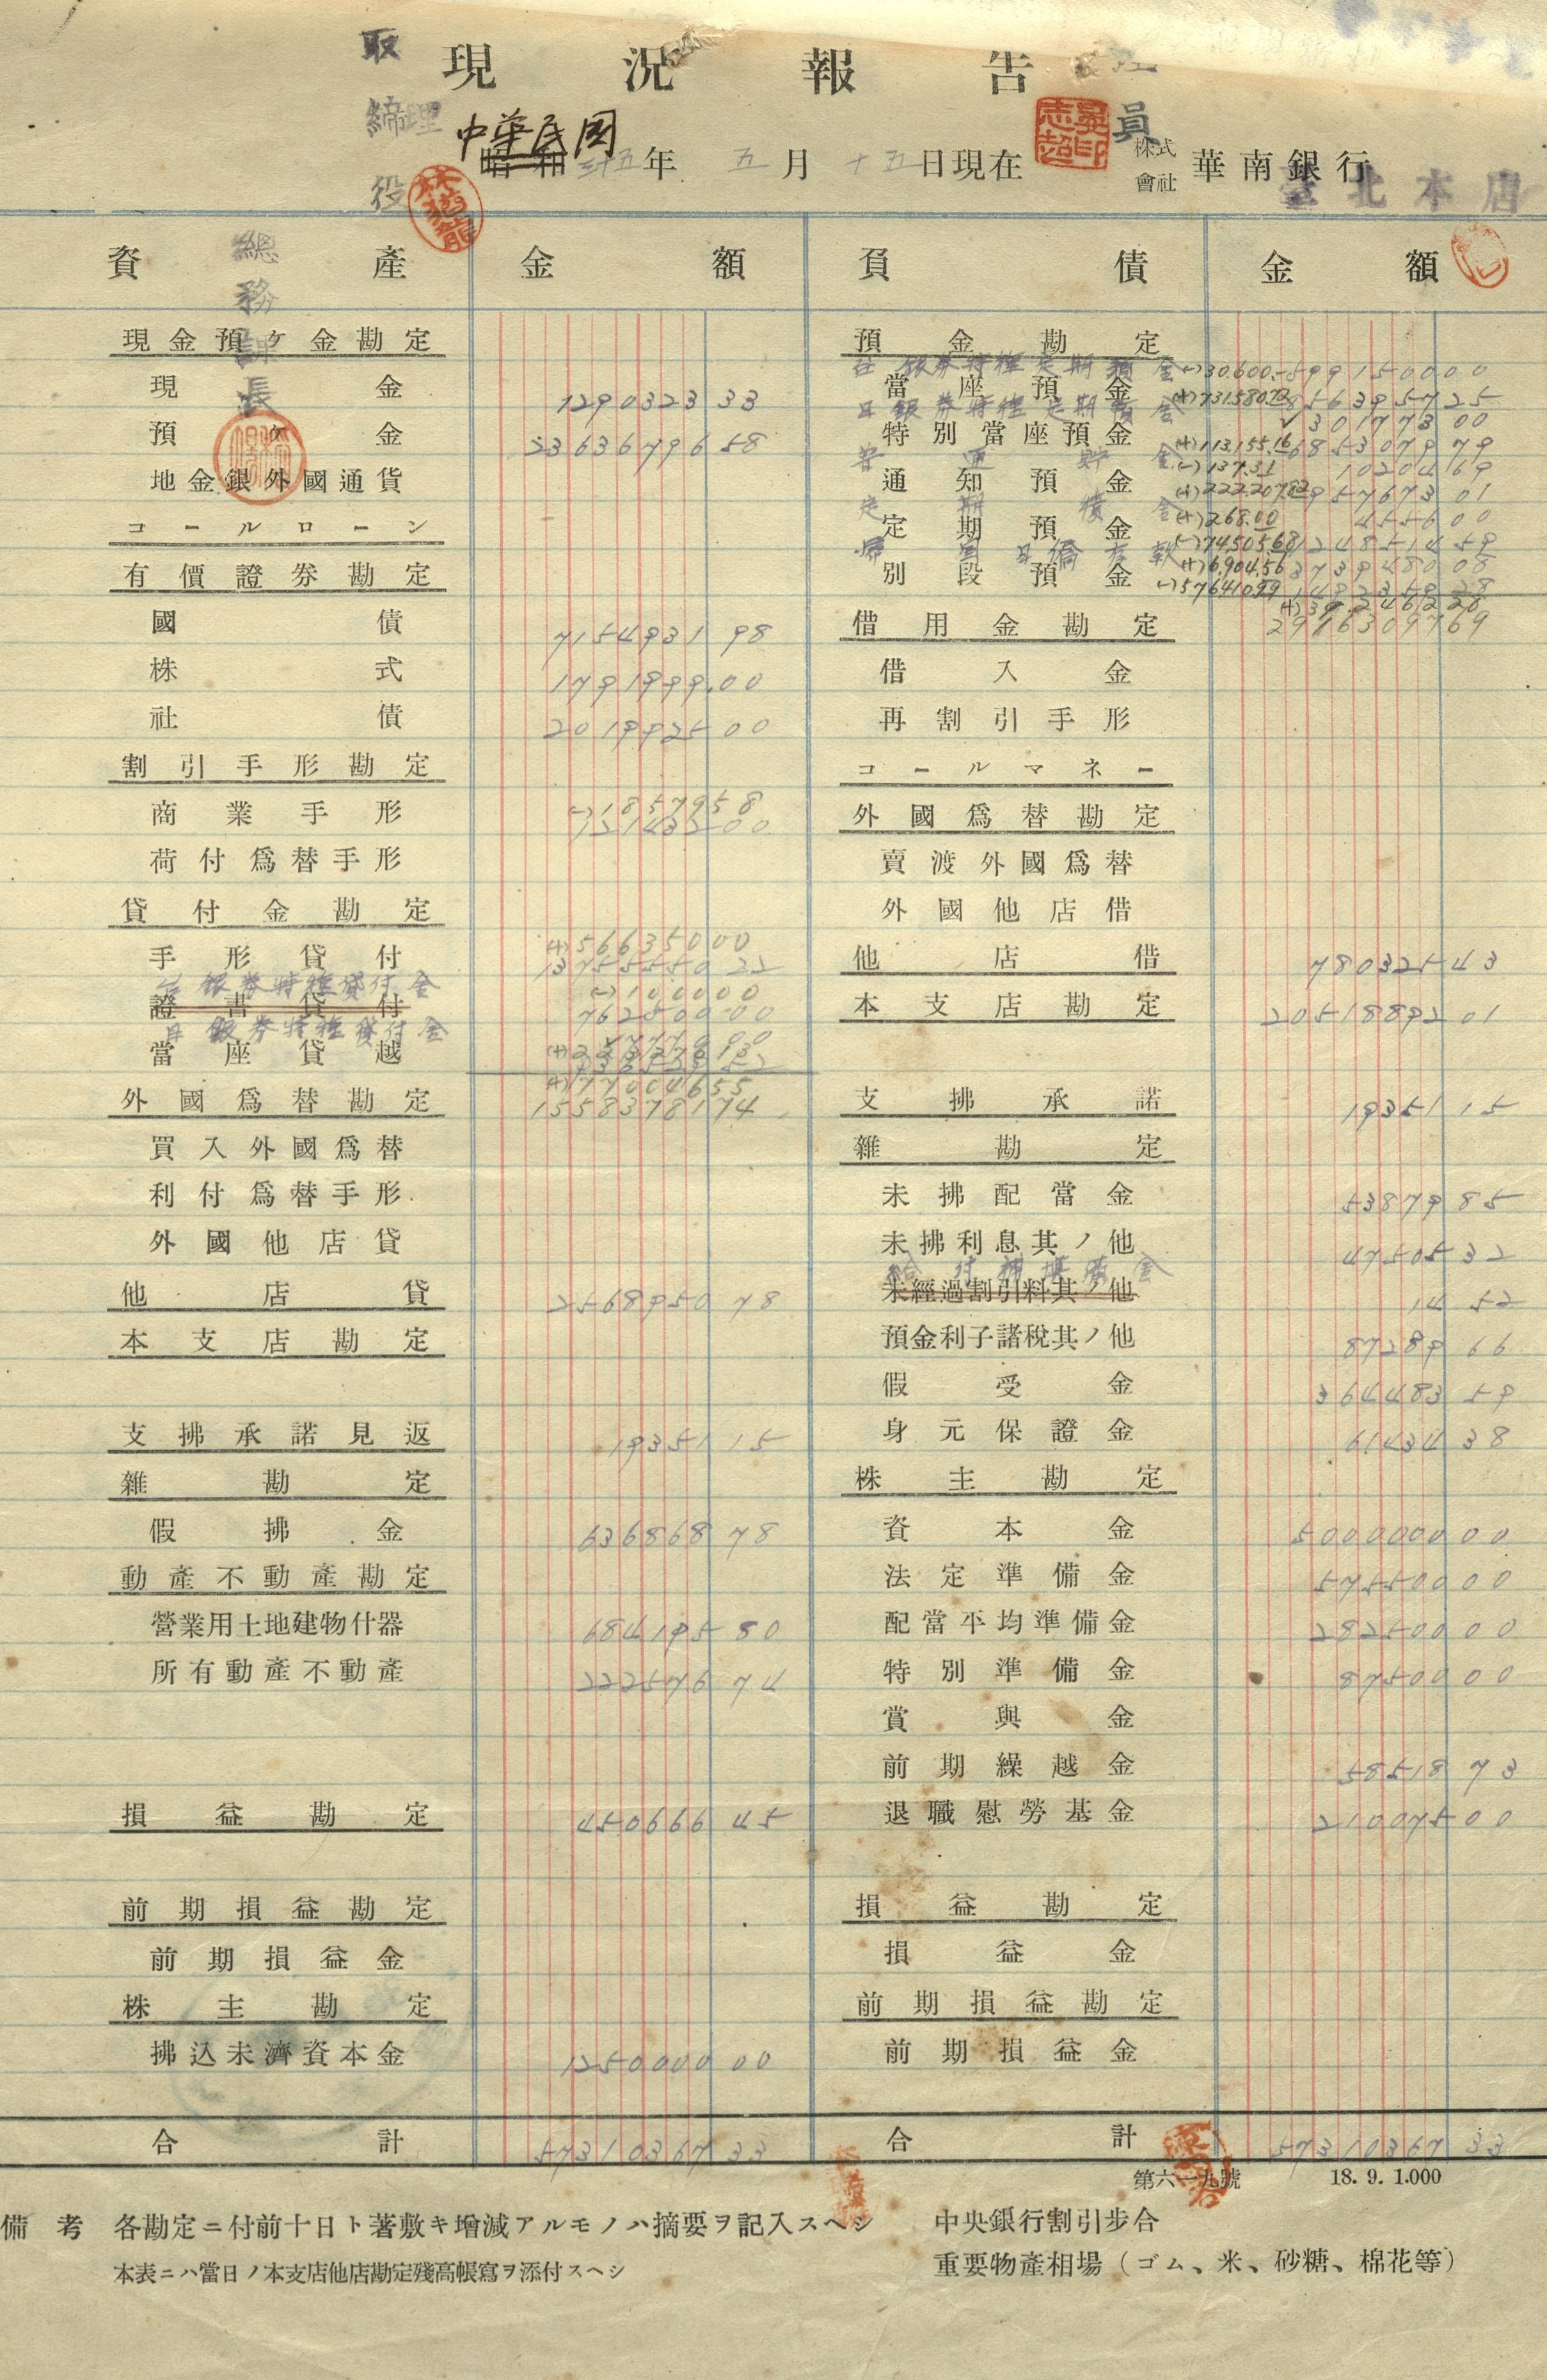 現況報告
取締役
理
員
中華民国
昭和 三十五年 五月 十五日現在 株式會社 華南銀行
臺北本店
總務課長
資產 金額 負債 金額
現金預ケ金勘定
現金 1290323 33
預ケ金 23636796 58
地金銀外國通貨
コールローン
有價證券勘定
國債 7154931 98
株式 1791999.00
社債 2019925 00
割引手形勘定
商業手形 (-)1857958
151432 00
荷付爲替手形
貸付金勘定
手形貸付 (+)56635000
13755550 22
台銀券特種貸付金 (-)100000
證書貸付 762800 00
日銀券特種貸付金
當座貸越
(+)77004655
1558378174
外國爲替勘定
買入外國爲替
利付爲替手形
外國他店貸
他店貸 2568950 78
本支店勘定
支拂承諾見返 19351 15
雜勘定
假拂金 636868 78
動產不動產勘定
營業用土地建物什器 684195 80
所有動產不動產 222576 74
損益勘定 450666 45
前期損益勘定
前期損益金
株主勘定
拂込未濟資本金 1250000 00
合計 57310367 33
預金勘定
銀券特種定期預金 (-)30.600.- 599150000
當座預金 (+)731580.72 856395725
日銀券特種定期預金 301773 00
特別當座預金 (+)113.155.16 685307979
普通貯金 (-)137.31 1020469
通知預金 (+)222.207.82 95767301
定期積金 (+)268.00 455600
定期預金 (-)74.505.68 1248514 59
別段預金 (+)6.904.56 373948008
(-)576410.99
2976309769
借用金勘定
借入金
再割引手形
コールマネー
外國爲替勘定
賣渡外國爲替
外國他店借
他店借 780325 43
本支店勘定 20518892 01
支拂承諾 19351 15
雜勘定
未拂配當金 53879 85
未拂利息其ノ他 47505 32
給付補塡備金
未經過割引料其ノ他 14 52
預金利子諸稅其ノ他 87289 66
假受金 364483 59
身元保證金 61434 38
株主勘定
資本金 5000000 00
法定準備金 575500 00
配當平均準備金 282500 00
特別準備金 87500 00
賞與金
前期繰越金 58518 73
退職慰勞基金 210075 00
損益勘定
損益金
前期損益勘定
前期損益金
合計 57310367 33
第六一九號 18. 9. 1.000
備考 各勘定ニ付前十日ト著敷キ增減アルモノハ摘要ヲ記入スヘシ
本表ニハ當日ノ本支店他店勘定殘高帳寫ヲ添付スヘシ
中央銀行割引步合
重要物產相場（ゴム、米、砂糖、棉花等）